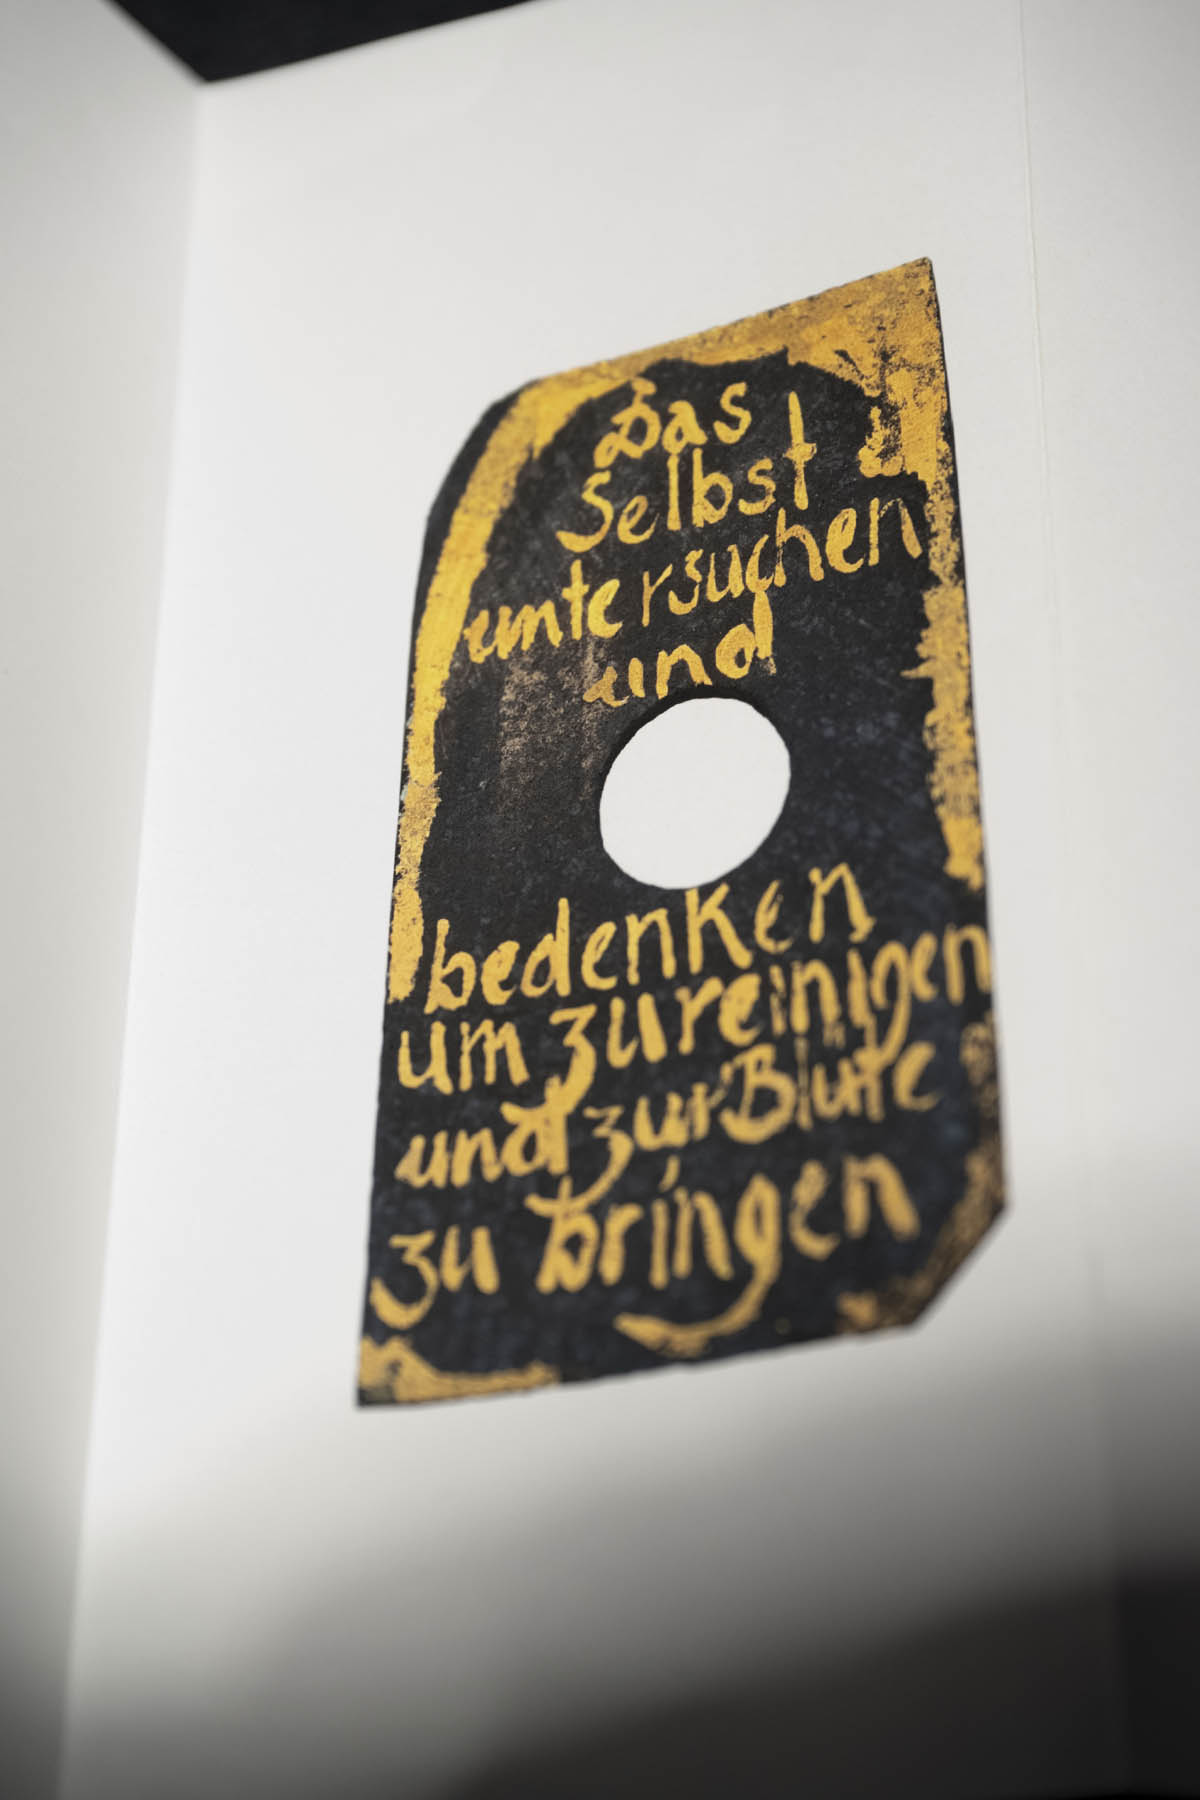 Das
Selbst
untersuchen
und
bedenken
um zu reinigen
und zur Blüte
zu bringen